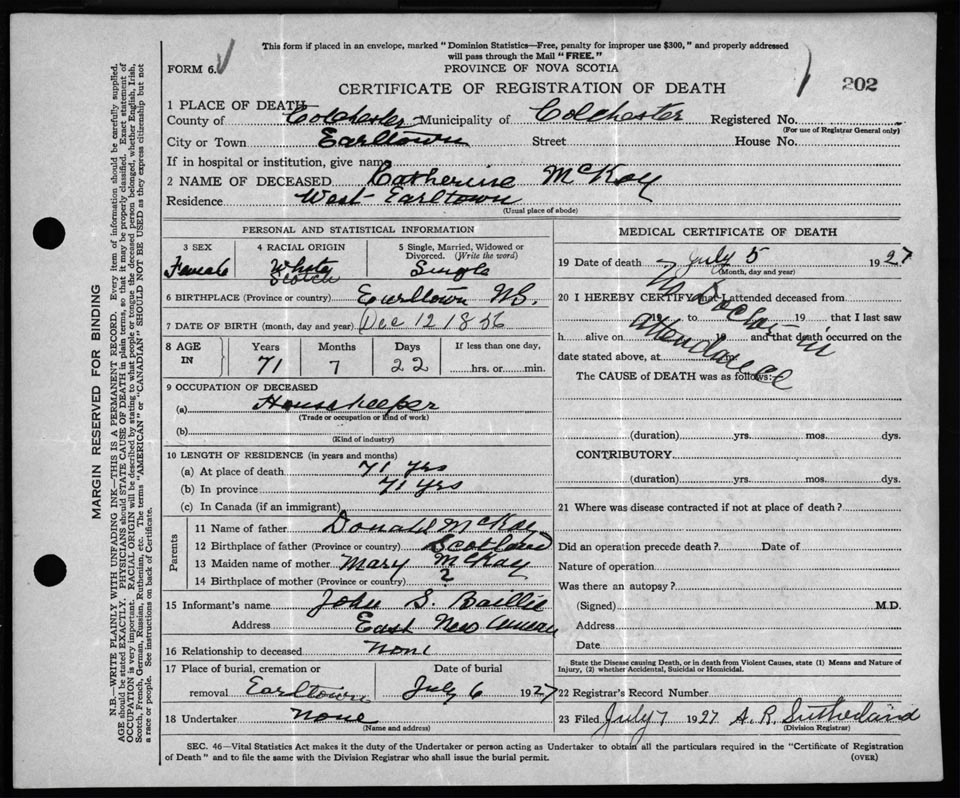 This form if placed in an envelope, marked "Dominion Statistics—Free, penalty for improper use $300," and properly addressed
will pass through the Mail "FREE."
FORM 6.
PROVINCE OF NOVA SCOTIA
CERTIFICATE OF REGISTRATION OF DEATH
202
1 PLACE OF DEATH
County of Colchester Municipality of Colchester Registered No.
(For use of Registrar General only)
City or Town Earltown Street House No.
If in hospital or institution, give name
2 NAME OF DECEASED Catherine McKay
Residence West Earltown
(Usual place of abode)
PERSONAL AND STATISTICAL INFORMATION
3 SEX 4 RACIAL ORIGIN 5 Single, Married, Widowed or Divorced. (Write the word)
Female White Scotch Single
6 BIRTHPLACE (Province or country) Earltown N.S.
7 DATE OF BIRTH (month, day and year) Dec 12 1856
8 AGE IN Years Months Days If less than one day,
71 7 22 hrs. or min.
9 OCCUPATION OF DECEASED
(a) Housekeeper
(Trade or occupation or kind of work)
(b)
(Kind of industry)
10 LENGTH OF RESIDENCE (in years and months)
(a) At place of death 71 yrs
(b) In province 71 yrs
(c) In Canada (if an immigrant)
Parents
11 Name of father Donald McKay
12 Birthplace of father (Province or country) Scotland
13 Maiden name of mother Mary McKay
14 Birthplace of mother (Province or country) ?
15 Informant's name John S. Baillie
Address East New Annan
16 Relationship to deceased none
17 Place of burial, cremation or Date of burial
removal Earltown July 6 1927
18 Undertaker none
(Name and address)
MEDICAL CERTIFICATE OF DEATH
19 Date of death July 5 1927
(Month, day and year)
20 I HEREBY CERTIFY that I attended deceased from
19 to 19 that I last saw
h alive on 19 and that death occurred on the
date stated above, at
No Doctor in
attendance
The CAUSE of DEATH was as follows:—
(duration) yrs. mos. dys.
CONTRIBUTORY
(duration) yrs. mos. dys.
21 Where was disease contracted if not at place of death?
Did an operation precede death? Date of
Nature of operation
Was there an autopsy?
(Signed) M.D.
Address
Date
State the Disease causing Death, or in death from Violent Causes, state (1) Means and Nature of
Injury, (2) whether Accidental, Suicidal or Homicidal.
22 Registrar's Record Number
23 Filed July 7 1927 A. R. Sutherland
(Division Registrar)
SEC. 46—Vital Statistics Act makes it the duty of the Undertaker or person acting as Undertaker to obtain all the particulars required in the "Certificate of Registration
of Death" and to file the same with the Division Registrar who shall issue the burial permit.
(OVER)
MARGIN RESERVED FOR BINDING
N.B.—WRITE PLAINLY WITH UNFADING INK—THIS IS A PERMANENT RECORD. Every item of information should be carefully supplied.
AGE should be stated EXACTLY. PHYSICIANS should STATE CAUSE OF DEATH in plain terms, so that it may be properly classified. Exact statement of
OCCUPATION is very important. RACIAL ORIGIN will be described by stating to what people or tongue the deceased person belonged, whether English, Irish,
Scotch, French, German, Russian, Ruthenian, etc. The terms "AMERICAN" or "CANADIAN" SHOULD NOT BE USED as they express citizenship but not
a race or people. See instructions on back of Certificate.